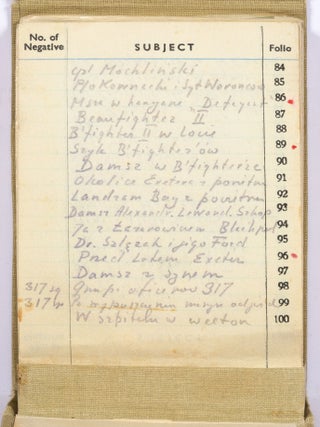 No. of Negative SUBJECT Folio
cpl Machliński 84
Plo Kownacki i Syt Woroncow 85
Msza w hangarze "Defegent 86
Beaufighter II 87
B'fighter II w locie 88
Szyk B'fighter'ów 89
Damsz w B'fighterze 90
Okolice Exeter z powietrza 91
Landram Bay z powietrza 92
Damsz Alexandr. Lewand. Szkop 93
Ja z Lazarowiczem Blackpool 94
Dr. Szlęzak i jego Ford 95
Przed lotem Exeter 96
Damsz z synem 97
317 sq Grupa oficerów 317 98
317 sq 99
W szpitalu w Weeton 100